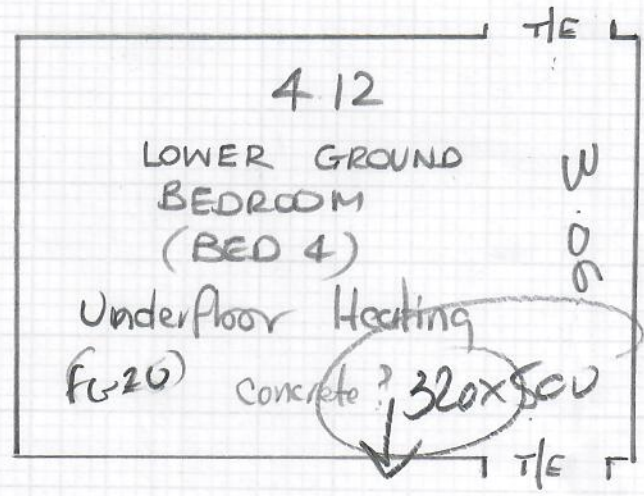 T/E
4.12
LOWER GROUND
BEDROOM
(BED 4)
3.09
Underfloor Heating
concrete ? 320x500
T/E